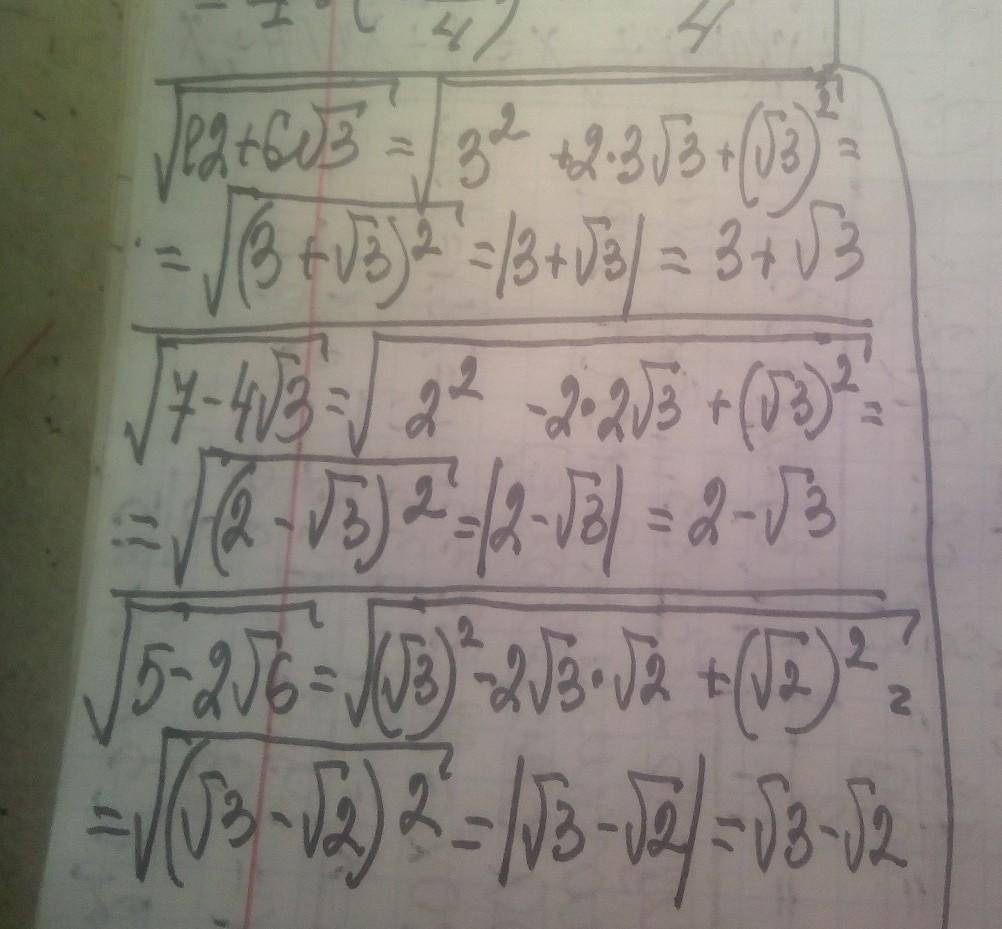 √12+6√3 = √3² +2·3√3+(√3)² =
= √(3+√3)² = |3+√3| = 3+√3
√7-4√3 = √2² -2·2√3 +(√3)² =
= √(2-√3)² = |2-√3| = 2-√3
√5-2√6 = √(√3)² -2√3·√2 +(√2)² =
= √(√3-√2)² = |√3-√2| = √3-√2